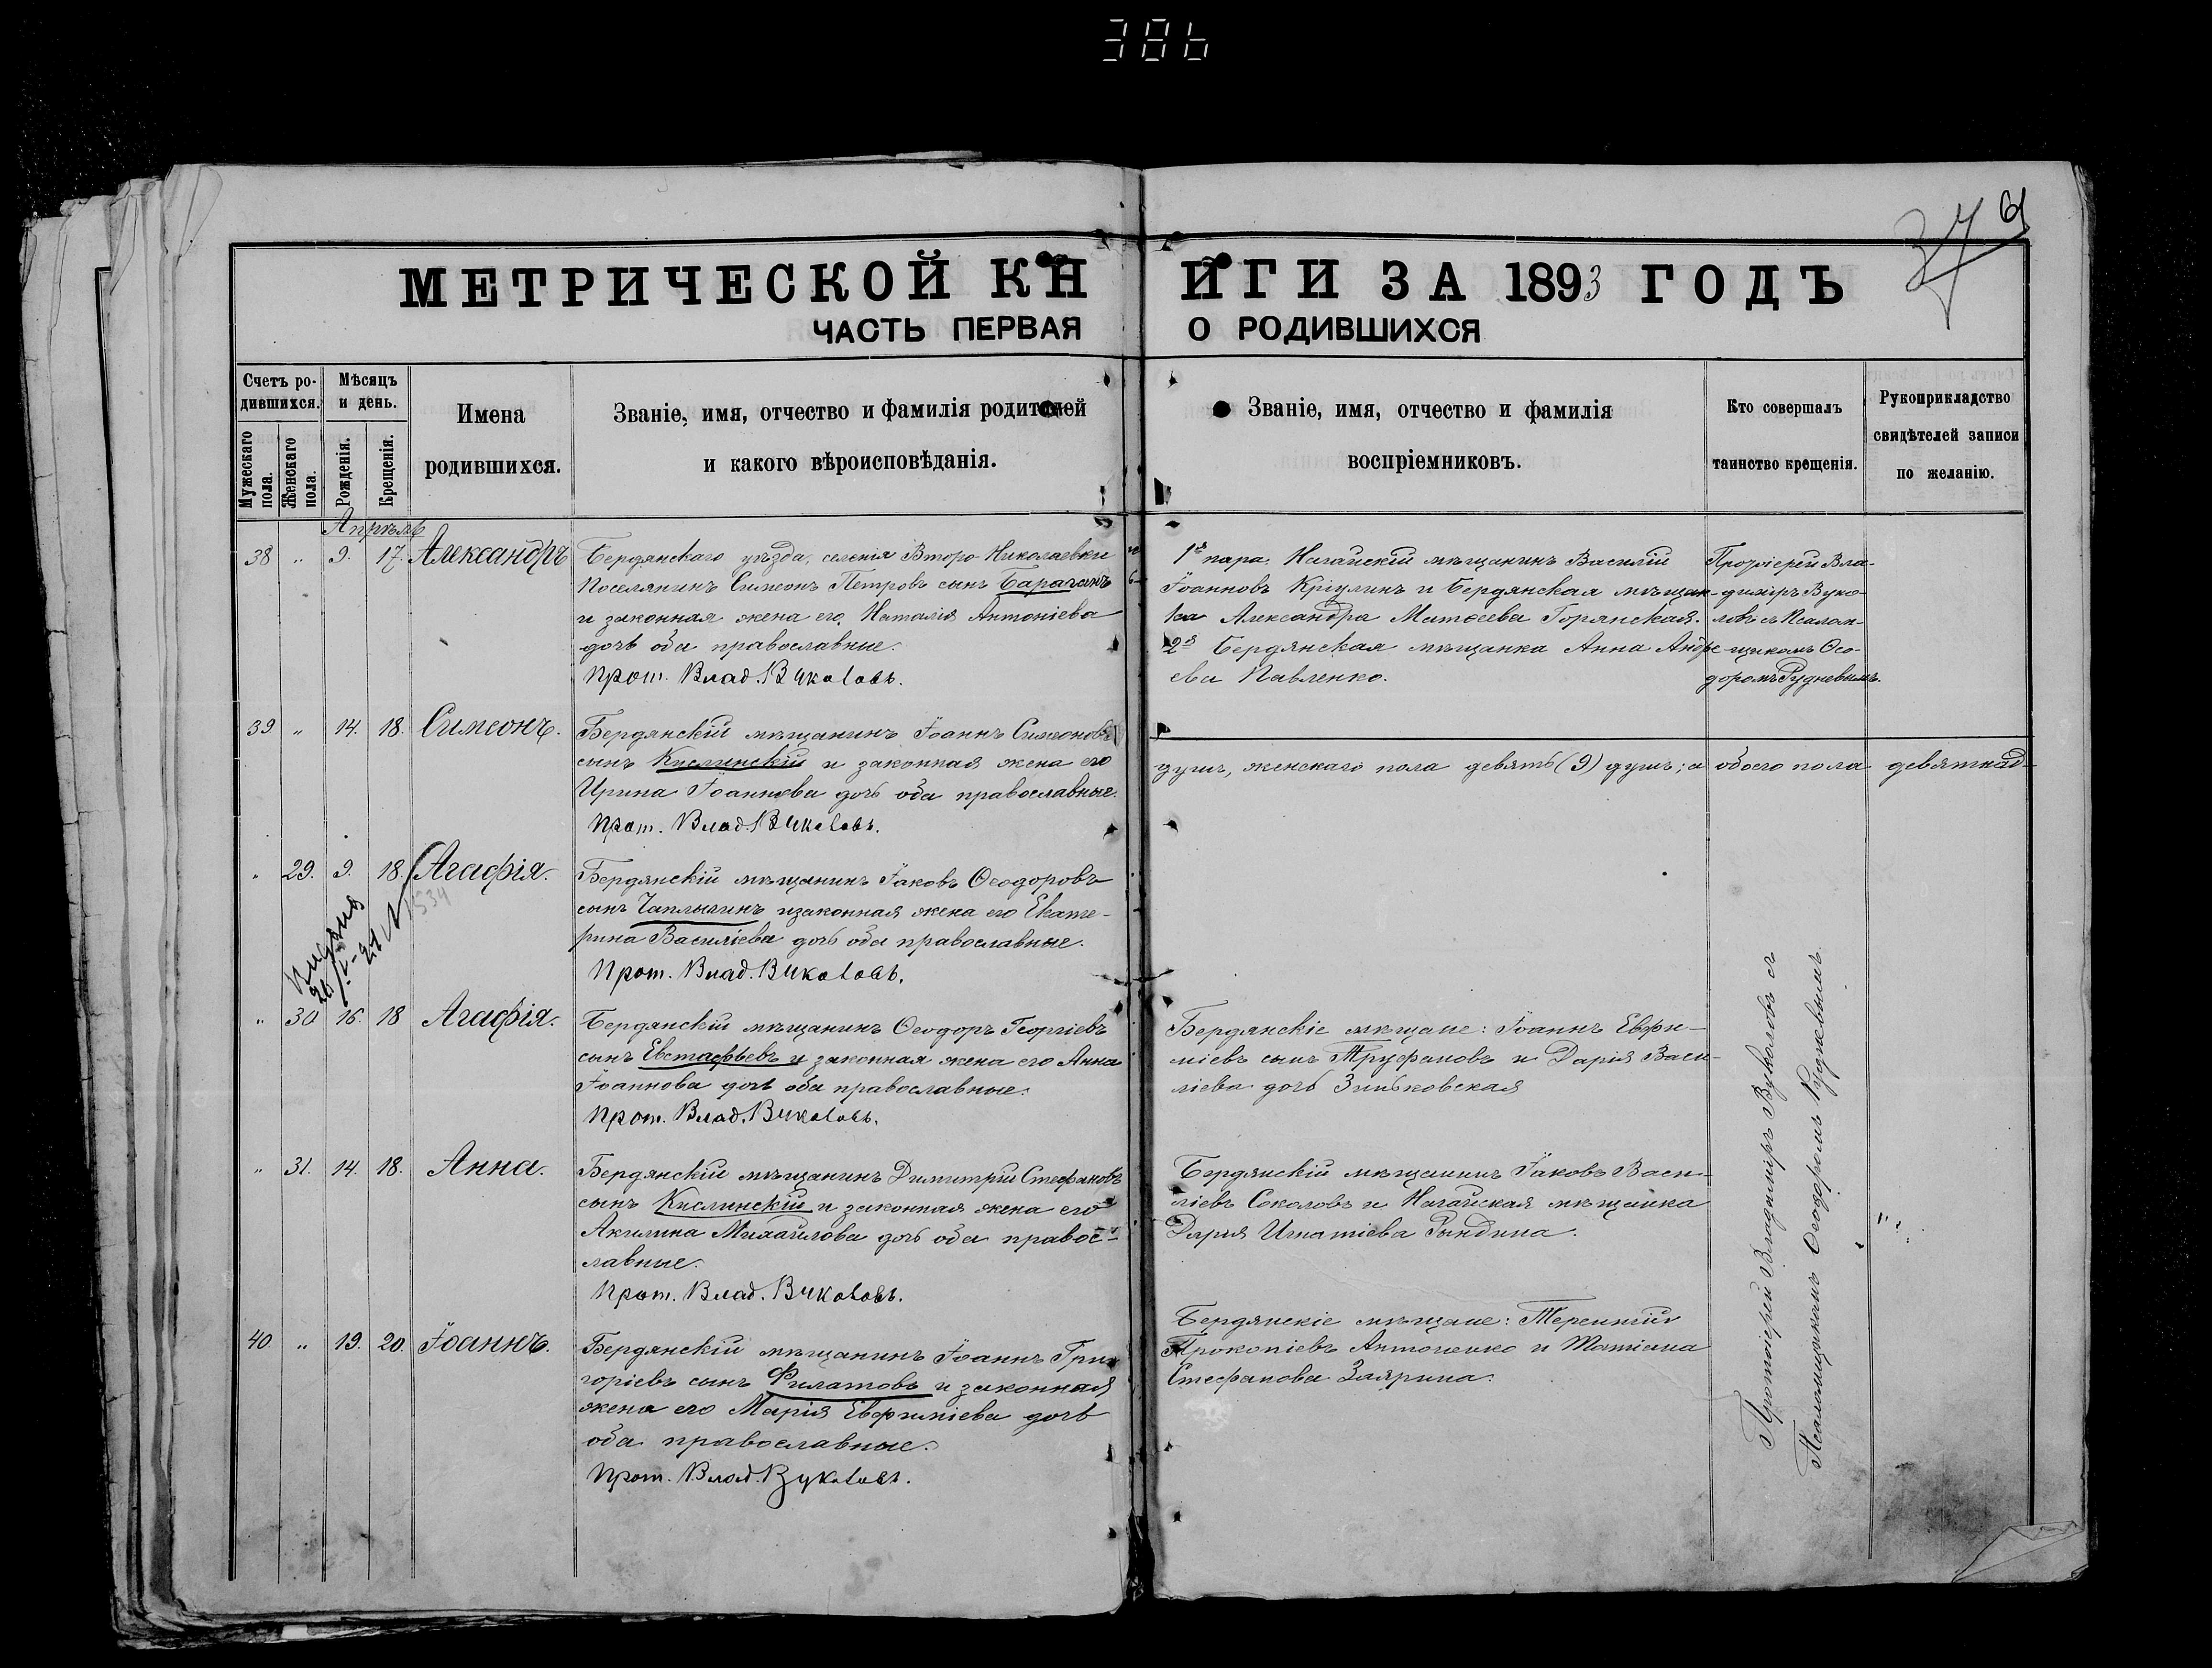 386
37
61
МЕТРИЧЕСКОЙ КНИГИ ЗА 1893 ГОДЪ
ЧАСТЬ ПЕРВАЯ О РОДИВШИХСЯ
Счетъ ро-
дившихся.
Мужескаго пола.
Женскаго пола.
Мѣсяцъ
и день.
Рожденія.
Крещенія.
Имена
родившихся.
Званіе, имя, отчество и фамилія родителей
и какого вѣроисповѣданія.
Званіе, имя, отчество и фамилія
воспріемниковъ.
Кто совершалъ
таинство крещенія.
Рукоприкладство
свидѣтелей записи
по желанію.
Апрѣль
38 " 9. 17. Александръ
Бердянскаго уѣзда, селенія Второ-Николаевки
Поселянинъ Симеонъ Петровъ сынъ Бараганъ
и законная жена его Наталія Антоніева
дочь оба православные.
Прот. Влад. Вуколовъ.
39 " 14. 18. Симеонъ.
Бердянскій мѣщанинъ Іоаннъ Симеоновъ
сынъ Кислинскій и законная жена его
Ирина Іоаннова дочь оба православные.
Прот. Влад. Вуколовъ.
" 29. 9. 18. Агафія.
Бердянскій мѣщанинъ Іаковъ Ѳеодоровъ
сынъ Чаплыгинъ и законная жена его Екате-
рина Василіева дочь оба православные.
Прот. Влад. Вуколовъ.
" 30 16. 18 Агафія.
Бердянскій мѣщанинъ Ѳеодоръ Георгіевъ
сынъ Евстафьевъ и законная жена его Анна
Іоаннова дочь оба православные.
Прот. Влад. Вуколовъ.
" 31. 14. 18. Анна.
Бердянскій мѣщанинъ Димитрій Стефановъ
сынъ Кислинскій и законная жена его
Акилина Михайлова дочь оба правос-
лавные.
Прот. Влад. Вуколовъ.
40 " 19. 20. Іоаннъ.
Бердянскій мѣщанинъ Іоаннъ Гри-
горіевъ сынъ Филатовъ и законная
жена его Марія Евфиміева дочь
оба православные.
Прот. Влад. Вуколовъ.
1я пара. Ногайскій мѣщанинъ Василій
Іоанновъ Кріулинъ и Бердянская мѣщан-
ка Александра Матѳеева Горянская.
2я Бердянская мѣщанка Анна Андре-
ева Павленко.
Протоіерей Вла-
диміръ Вуко-
ловъ съ Псалом-
щикомъ Ѳео-
доромъ Рудневымъ.
душъ, женскаго пола девять (9) душъ; а обоего пола девятнад-
Бердянскіе мѣщане: Іоаннъ Евфи-
міевъ сынъ Труфановъ и Дарія Васи-
ліева дочь Зиньковская
Бердянскій мѣщанинъ Іаковъ Васи-
ліевъ Соколовъ и Ногайская мѣщанка
Дарія Игнатіева Рындина.
Бердянскіе мѣщане: Терентій
Прокопіевъ Антоненко и Татіана
Стефанова Заярина.
Протоіерей Владиміръ Вуколовъ съ
Псаломщикомъ Ѳеодоромъ Рудневымъ